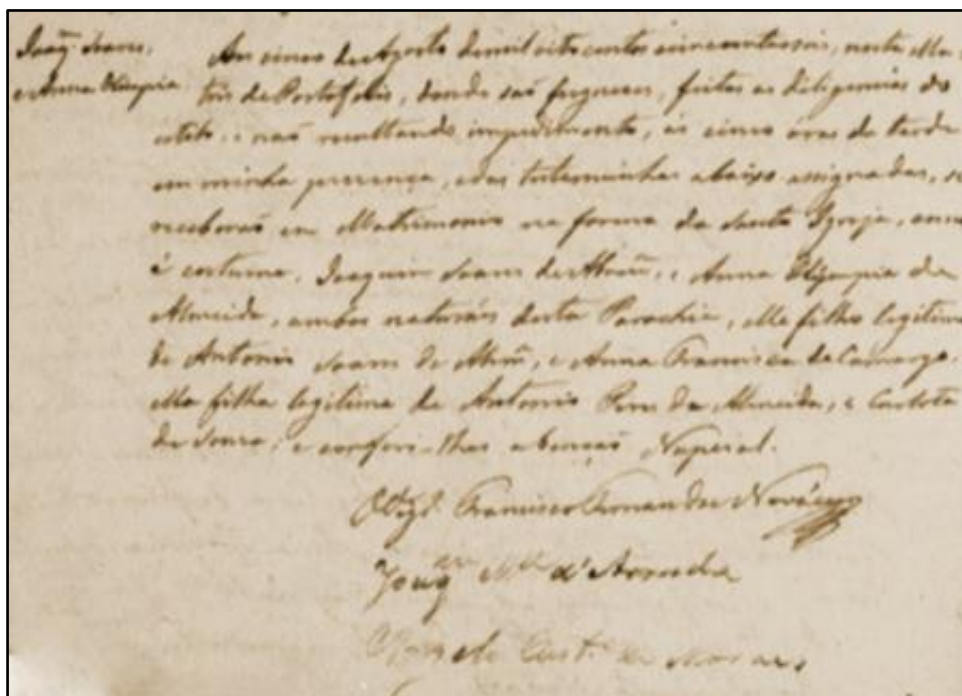 Joaqm. Soares,
e Anna Olimpia
Aos cinco de Agosto de mil oito centos cincoentaseis, nesta Ma-
tris de Portofelis, donde são fregueses, feitas as diligencias do
estilo e não resultando impedimento, ás cinco oras da tarde
em minha presença, e das testemunhas abaixo assignadas, se
receberão em Matrimonio na forma da Santa Igreja, como
é costume, Joaquim Soares de e Anna Olympia de
Almeida, ambos naturáes desta Parochia, Elle filho legitimo
de Antonio Soares de e Anna Francisca de Camargo.
Ella filha legitima de Antonio Pires de Almeida, e Carlota
de Souza; e conferi-lhes a benção Nupcial.
O Vigro. Francisco Fernandes Novaes
Joaqm. Mel. d'Arruda
de Moraes